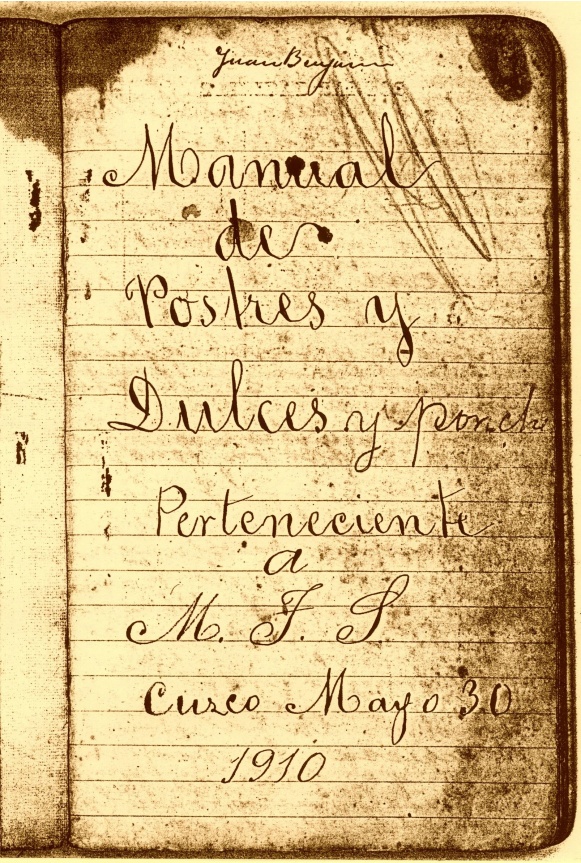 Juan Benjamin
Manual
de
Postres y
Dulces y ponche
Perteneciente
a
M. J. S.
Cuzco Mayo 30
1910